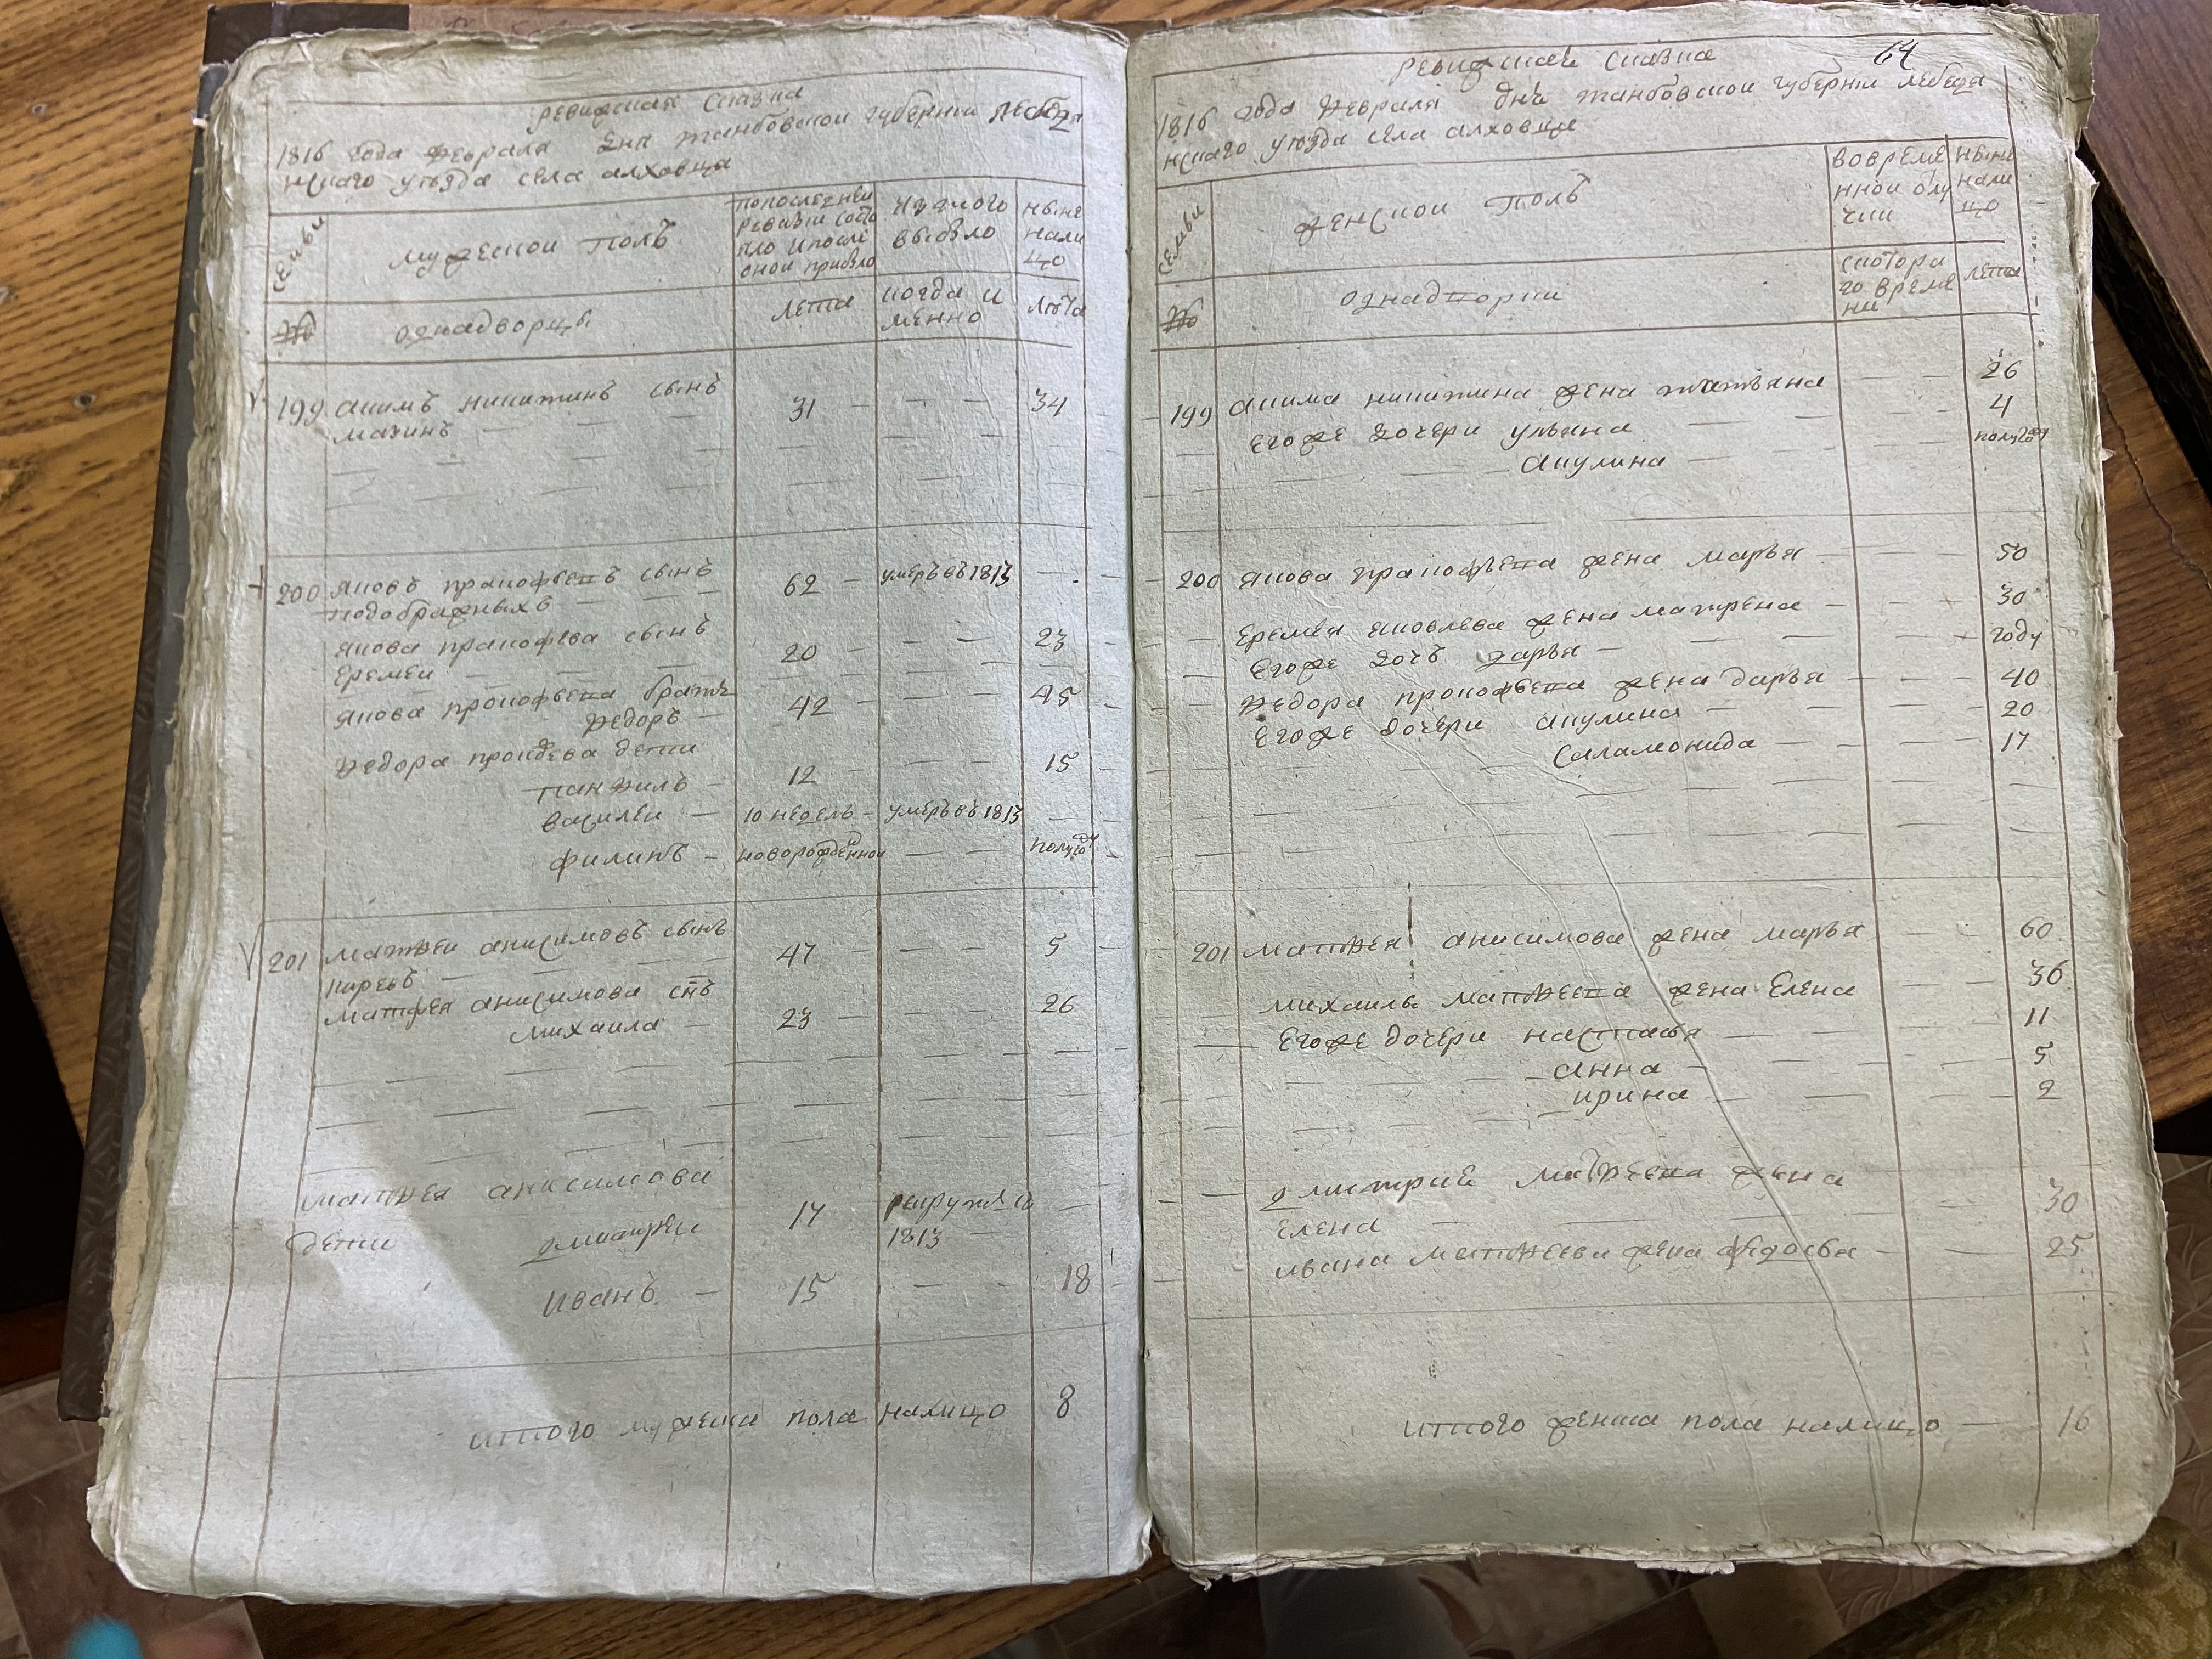 ревизская сказка
1816 года февраля дня танбовской губернии лебедя
нскаго уезда села алховца
семьи
мужеской полъ
попоследней ревизии состо яло ипосле оной прибыло
изтого выбыло
ныне нали цо
№
однадворцы
лета
когда и менно
лета
199 акимъ никитинъ сынъ 31 34
мазинъ
200 яковъ пракофьевъ сынъ 62 умеръ въ 1813
подображныхъ
якова пракофева сынъ 20 23
Еремеи
якова прокофьева братъ 42 45
Федоръ
Федора прокофева дети
панфилъ 12 15
василеи 10 недель умеръ въ 1813
филипъ новорожденнои полугоду
201 матфеи анисимовъ сынъ 47 5
киревъ
матфея анисимова снъ
михаила 23 26
матфея анисимова
дети дмитреи 17 рекруты въ 1813
иванъ 15 18
итого мужеска пола налицо 8
64
ревизская сказка
1816 года февраля днъ танбовскои губернии лебедя
нскаго уезда села алховца
семьи
женскои полъ
вовреме ннои отлу чки
ныне нали цо
№
однадворки
скотора го време ни
лета
199 акима никитина жена татьяна 26
Егоже дочери ульяна 4
акулина полугоду
200 якова пракофьева жена марья 50
Еремея яковлева жена матрена 30
Егоже дочь дарья году
Федора прокофьева жена дарья 40
Егоже дочери акулина 20
саламонида 17
201 матфея анисимова жена марья 60
михаилы матфеева жена Елена 36
Егоже дочери настасья 11
анна 5
ирина 2
дмитрие матфеева жена
Елена 30
ивана матфеева жена федосья 25
итого женска пола налицо 16